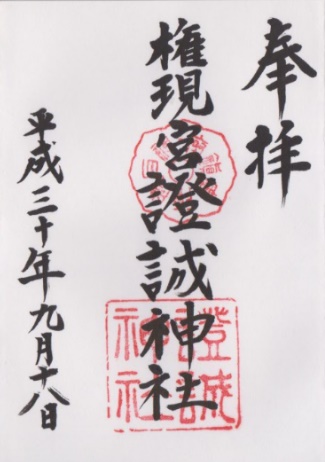 奉拝
権現宮證誠神社
平成三十年九月十八日
證誠
神社